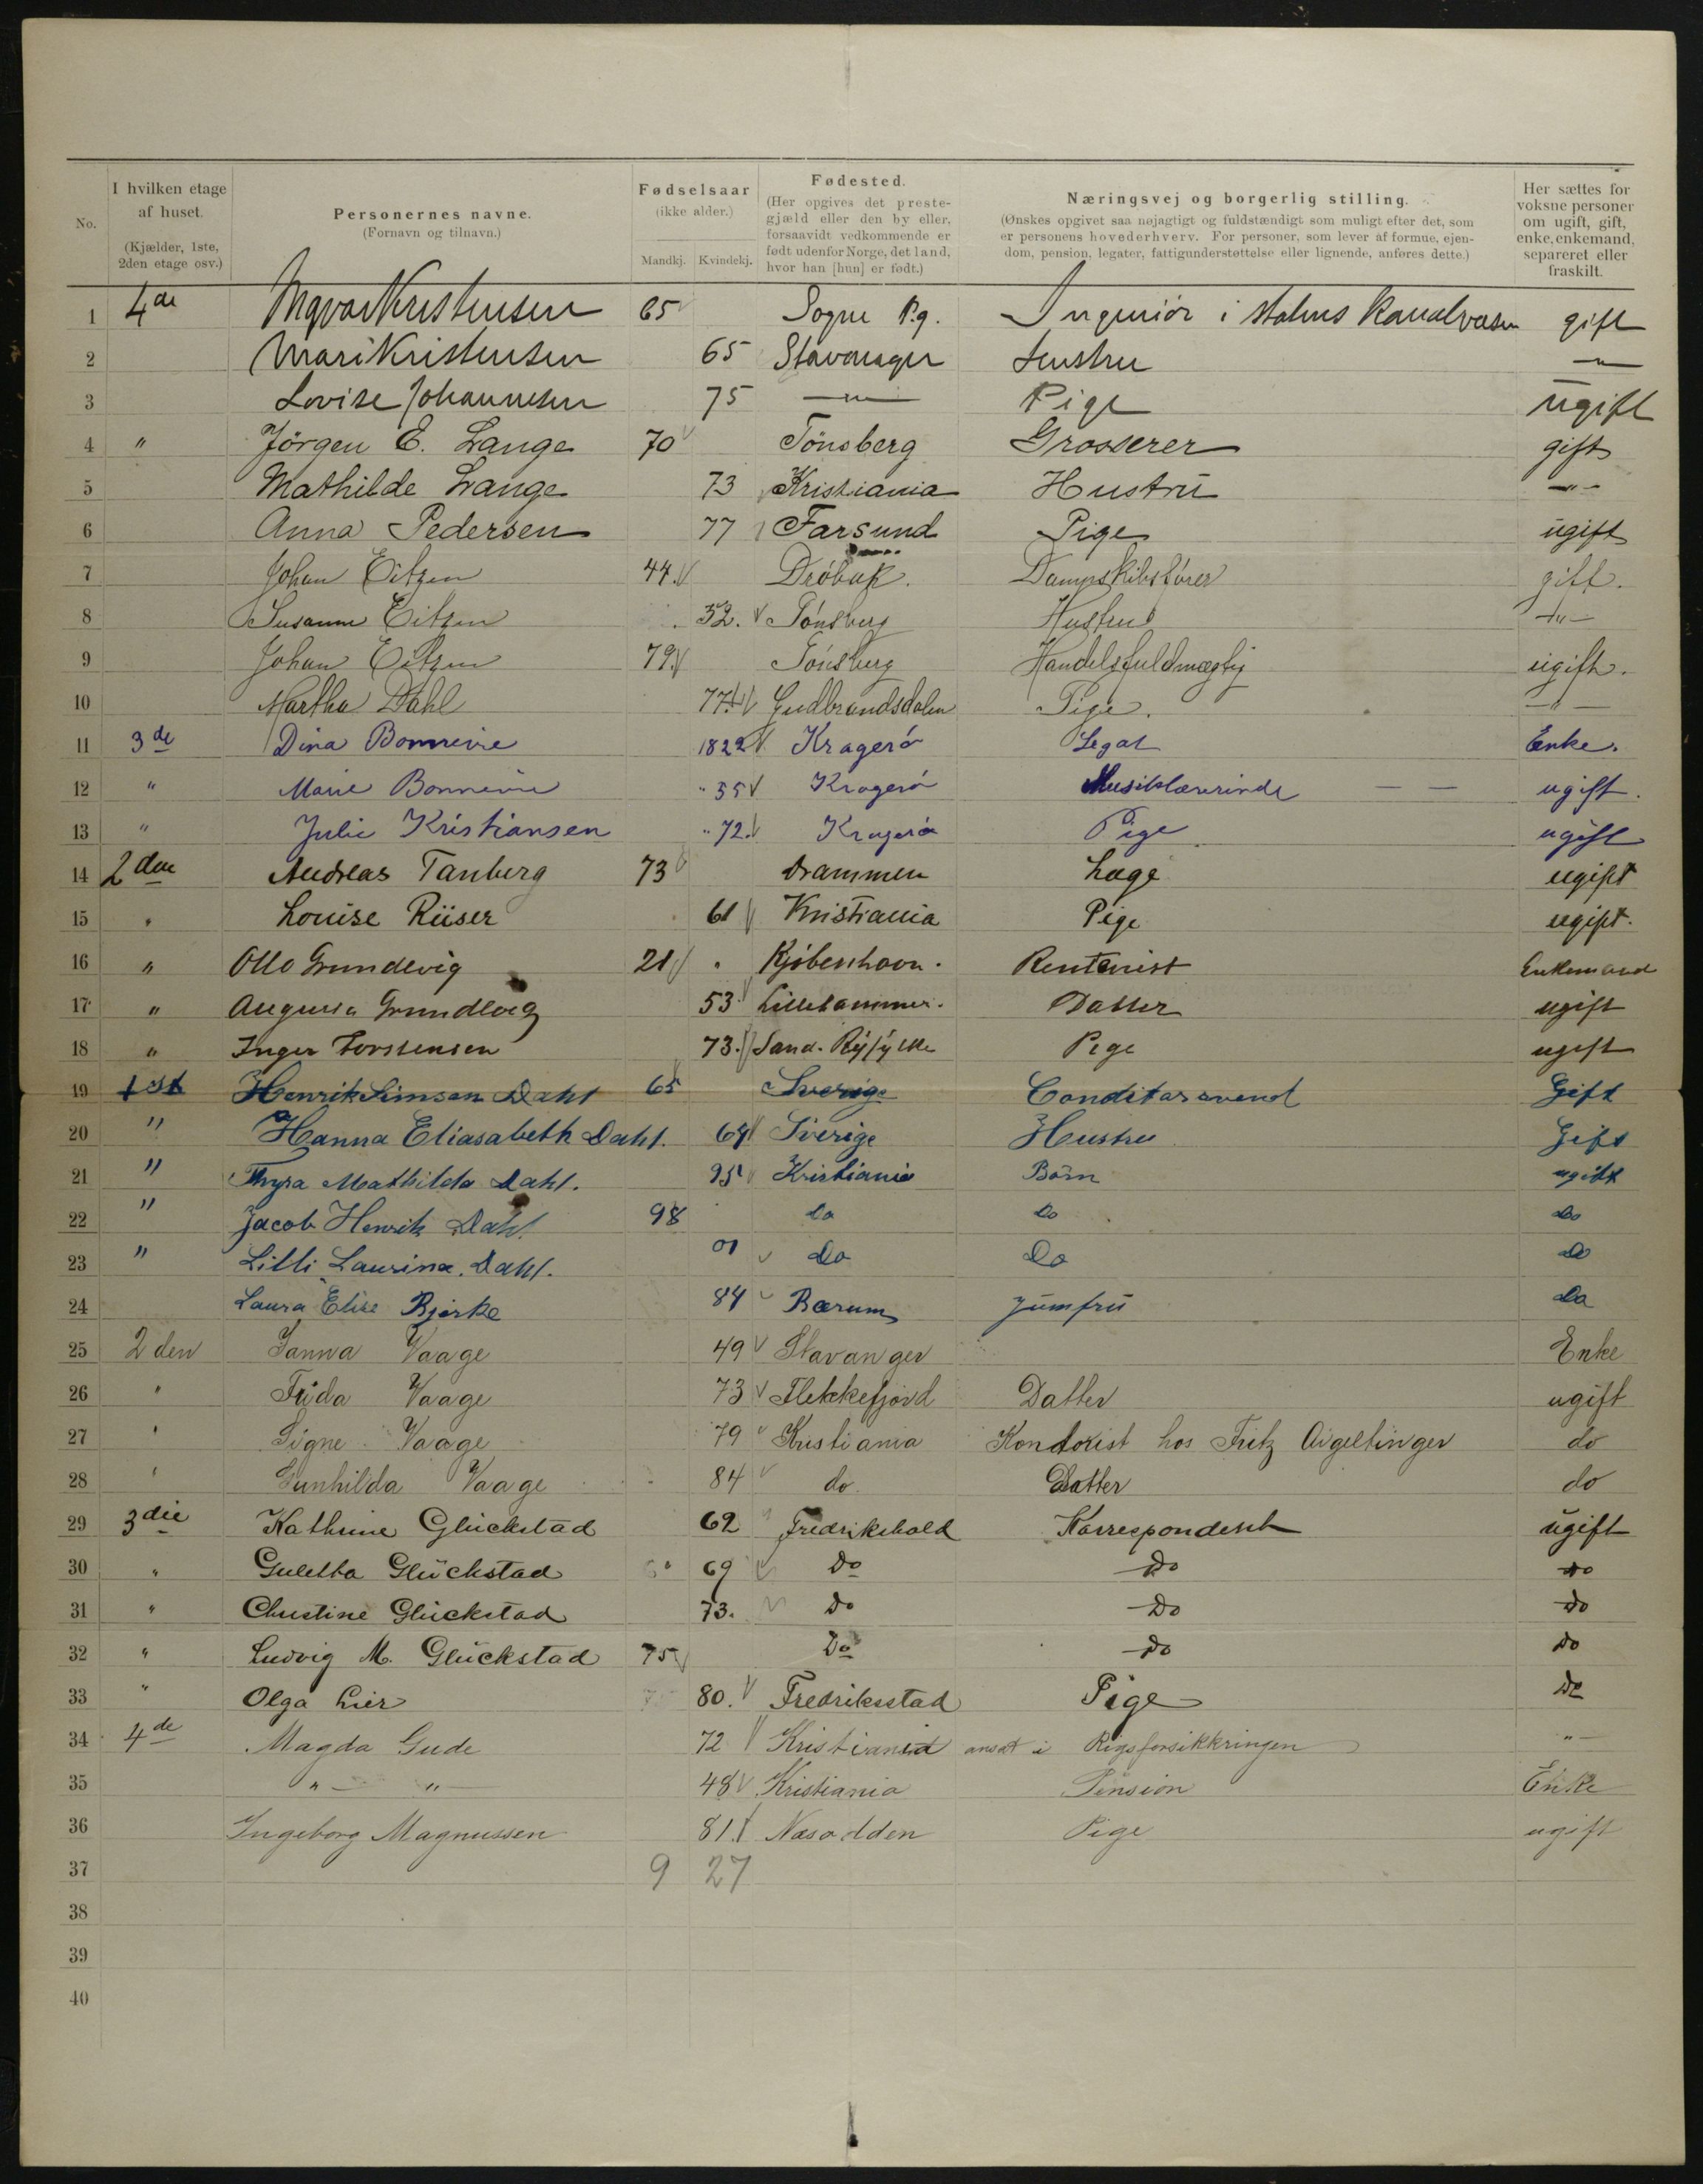 No.
I hvilken etage
af huset.
(Kjælder, 1ste,
2den etage osv.)
Personernes navne.
(Fornavn og tilnavn.)
Fødselsaar
(ikke alder.)
Mandkj. Kvindekj.
Fødested.
(Her opgives det preste-
gjæld eller den by eller,
forsaavidt vedkommende er
født udenfor Norge, det land,
hvor han [hun] er født.)
Næringsvej og borgerlig stilling.
(Ønskes opgivet saa nøjagtigt og fuldstændigt som muligt efter det, som
er personens hovederhverv. For personer, som lever af formue, ejen-
dom, pension, legater, fattigunderstøttelse eller lignende, anføres dette.)
Her sættes for
voksne personer
om ugift, gift,
enke, enkemand,
separeret eller
fraskilt.
1 4de Ingvar Kristensen 65 Sogne P.g. Ingeniör i statens Kanalvæsen gift
2 Mari Kristensen 65 Stavanger Hustru —"—
3 Lovise Johannesen 75 —"— Pige ugift
4 " Jörgen E. Lange 70 Tönsberg Grosserer gift
5 Mathilde Lange 73 Kristiania Hustru —"—
6 Anna Pedersen 77 Farsund Pige ugift
7 Johan Eitzen 44. Dröbak. Dampskibsfører gift.
8 Susanne Eitzen 52. Tönsberg Hustru —"—
9 Johan Eitzen 79. Tönsberg Handelsfuldmægtig ugift.
10 Martha Dahl 77. Gudbrandsdalen Pige. —"—
11 3de Dina Bonnevie 1822 Kragerö Legat Enke.
12 " Marie Bonnevie " 55 Kragerö Musiklærerinde — — ugift.
13 " Julie Kristiansen " 72. Kragerö Pige ugift
14 2den Andreas Tanberg 73 Drammen Læge ugift
15 " Louise Riiser 61 Kristiania Pige ugift.
16 " Otto Grundtvig 21 " Kjöbenhavn. Rentenist Enkemand
17 " Augusta Grundtvig 53 Lillehammer. Datter ugift
18 " Inger Torstensen 73. Sand. Ryfylke Pige ugift
19 1st Henrik Simsen Dahl 65 Sverige Conditorsvend Gift
20 " Hanna Eliasabeth Dahl. 64 Sverige Hustru Gift
21 " Thyra Mathilda Dahl. 95 Kristiania Börn ugift
22 " Jacob Henrik Dahl 98 do do do
23 " Lilli Laurina. Dahl. 01 Do Do Do
24 Laura Elise Bjerke 84 Bærum Jumfru Do
25 2den Janna Vaage 49 Stavanger Enke
26 " Frida Vaage 73 Flekkefjord Datter ugift
27 " Signe Vaage 79 Kristiania Kontorist hos Fritz Aigeltinger do
28 " Gunhilda Vaage 84 do. Datter do
29 3die Kathrine Glückstad 62 Fredrikshald Korrespondent ugift
30 " Guletta Glückstad 69 Do Do Do
31 " Christine Glückstad 73. Do Do Do
32 " Ludvig M. Glückstad 75 Do Do Do
33 " Olga Lier 80. Fredriksstad Pige Do
34 4de Magda Gude 72 Kristiania ansat i Rigsforsikkringen "—
35 "— "— 48 Kristiania Pension Enke
36 Ingeborg Magnussen 81. Næsodden Pige ugift
37 9 27
38
39
40